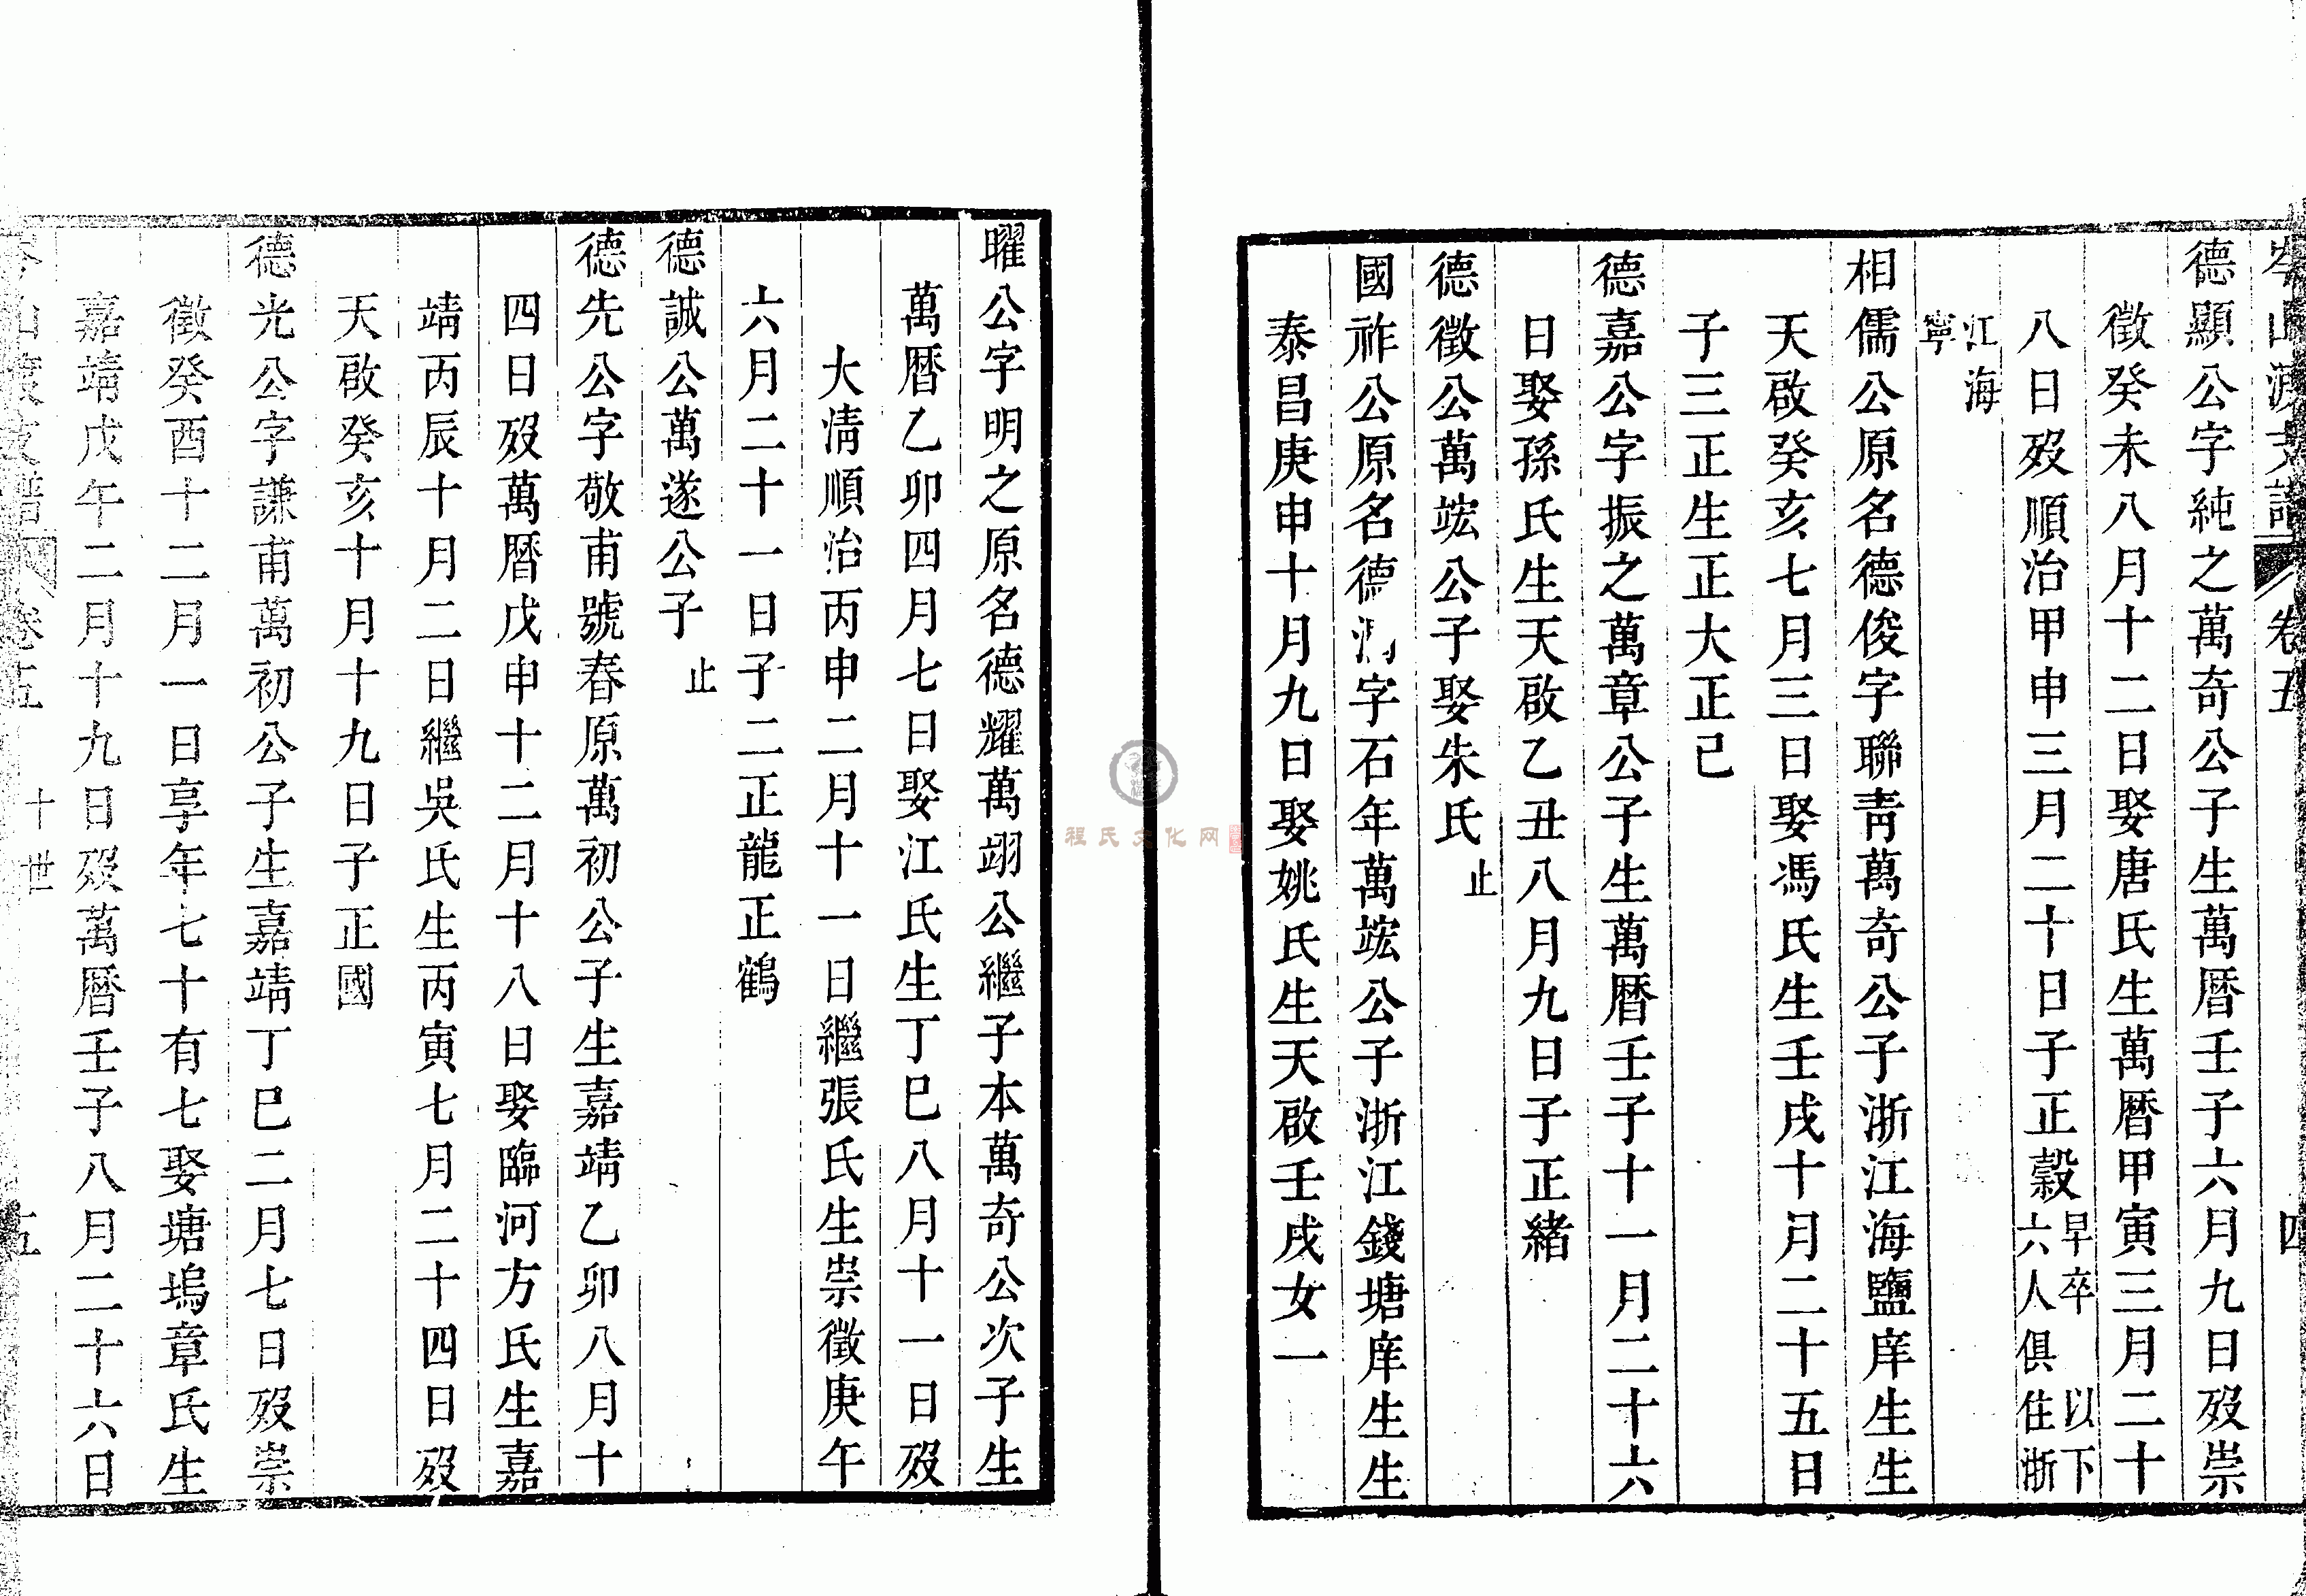 岑山渡支譜 卷五 四
德顯公字純之萬奇公子生萬曆壬子六月九日歿崇
徵癸未八月十二日娶唐氏生萬曆甲寅三月二十
八日歿順治甲申三月二十日子正穀早卒 以下六人俱住浙
江海寧
相儒公原名德俊字聯靑萬奇公子浙江海鹽庠生生
天啟癸亥七月三日娶馮氏生壬戌十月二十五日
子三正生正大正己
德嘉公字振之萬章公子生萬曆壬子十一月二十六
日娶孫氏生天啟乙丑八月九日子正緒
德徵公萬竑公子娶朱氏止
國祚公原名德字石年萬竑公子浙江錢塘庠生生
泰昌庚申十月九日娶姚氏生天啟壬戌女一
曜公字明之原名德耀萬翊公繼子本萬奇公次子生
萬曆乙卯四月七日娶江氏生丁巳八月十一日歿
大淸順治丙申二月十一日繼張氏生崇徵庚午
六月二十一日子二正龍正鶴
德誠公萬遂公子止
德先公字敬甫號春原萬初公子生嘉靖乙卯八月十
四日歿萬曆戊申十二月十八日娶臨河方氏生嘉
靖丙辰十月二日繼吳氏生丙寅七月二十四日歿
天啟癸亥十月十九日子正國
德光公字謙甫萬初公子生嘉靖丁巳二月七日歿崇
徵癸酉十二月一日享年七十有七娶塘塢章氏生
嘉靖戊午二月十九日歿萬曆壬子八月二十六日
岑山渡支譜 卷五 十世 五
程氏文化网